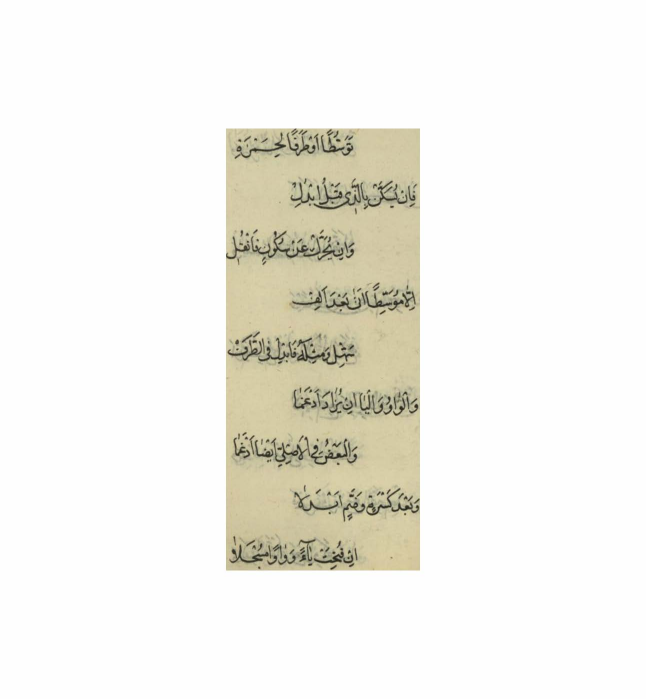 تَوَسُّطًا اَوْ طَرَفًا لِحَمْزَةِ
فَاِنْ يُسَكَّنْ بِالَّذِى قَبْلُ ابْدِلِ
وَاِنْ يُحَرَّكْ عَنْ سُكُونٍ فَانْقُلِ
اِلَّا مُوَسَّطًا اَتَى بَعْدَ اَلِفْ
سَهِّلْ وَمِثْلَهُ فَابْدِلْ فِى الطَّرَفْ
وَالْوَاوُ وَالْيَا اِنْ يُزَادَا اَدْغِمَا
وَالْبَعْضُ فِى الْاَصْلِىِّ اَيْضًا اَدْغَمَا
وَبَعْدَ كَسْرَةٍ وَضَمٍّ اَبْدِلَا
اِنْ فُتِحَتْ يَاءً وَوَاوًا مُسْجَلَا